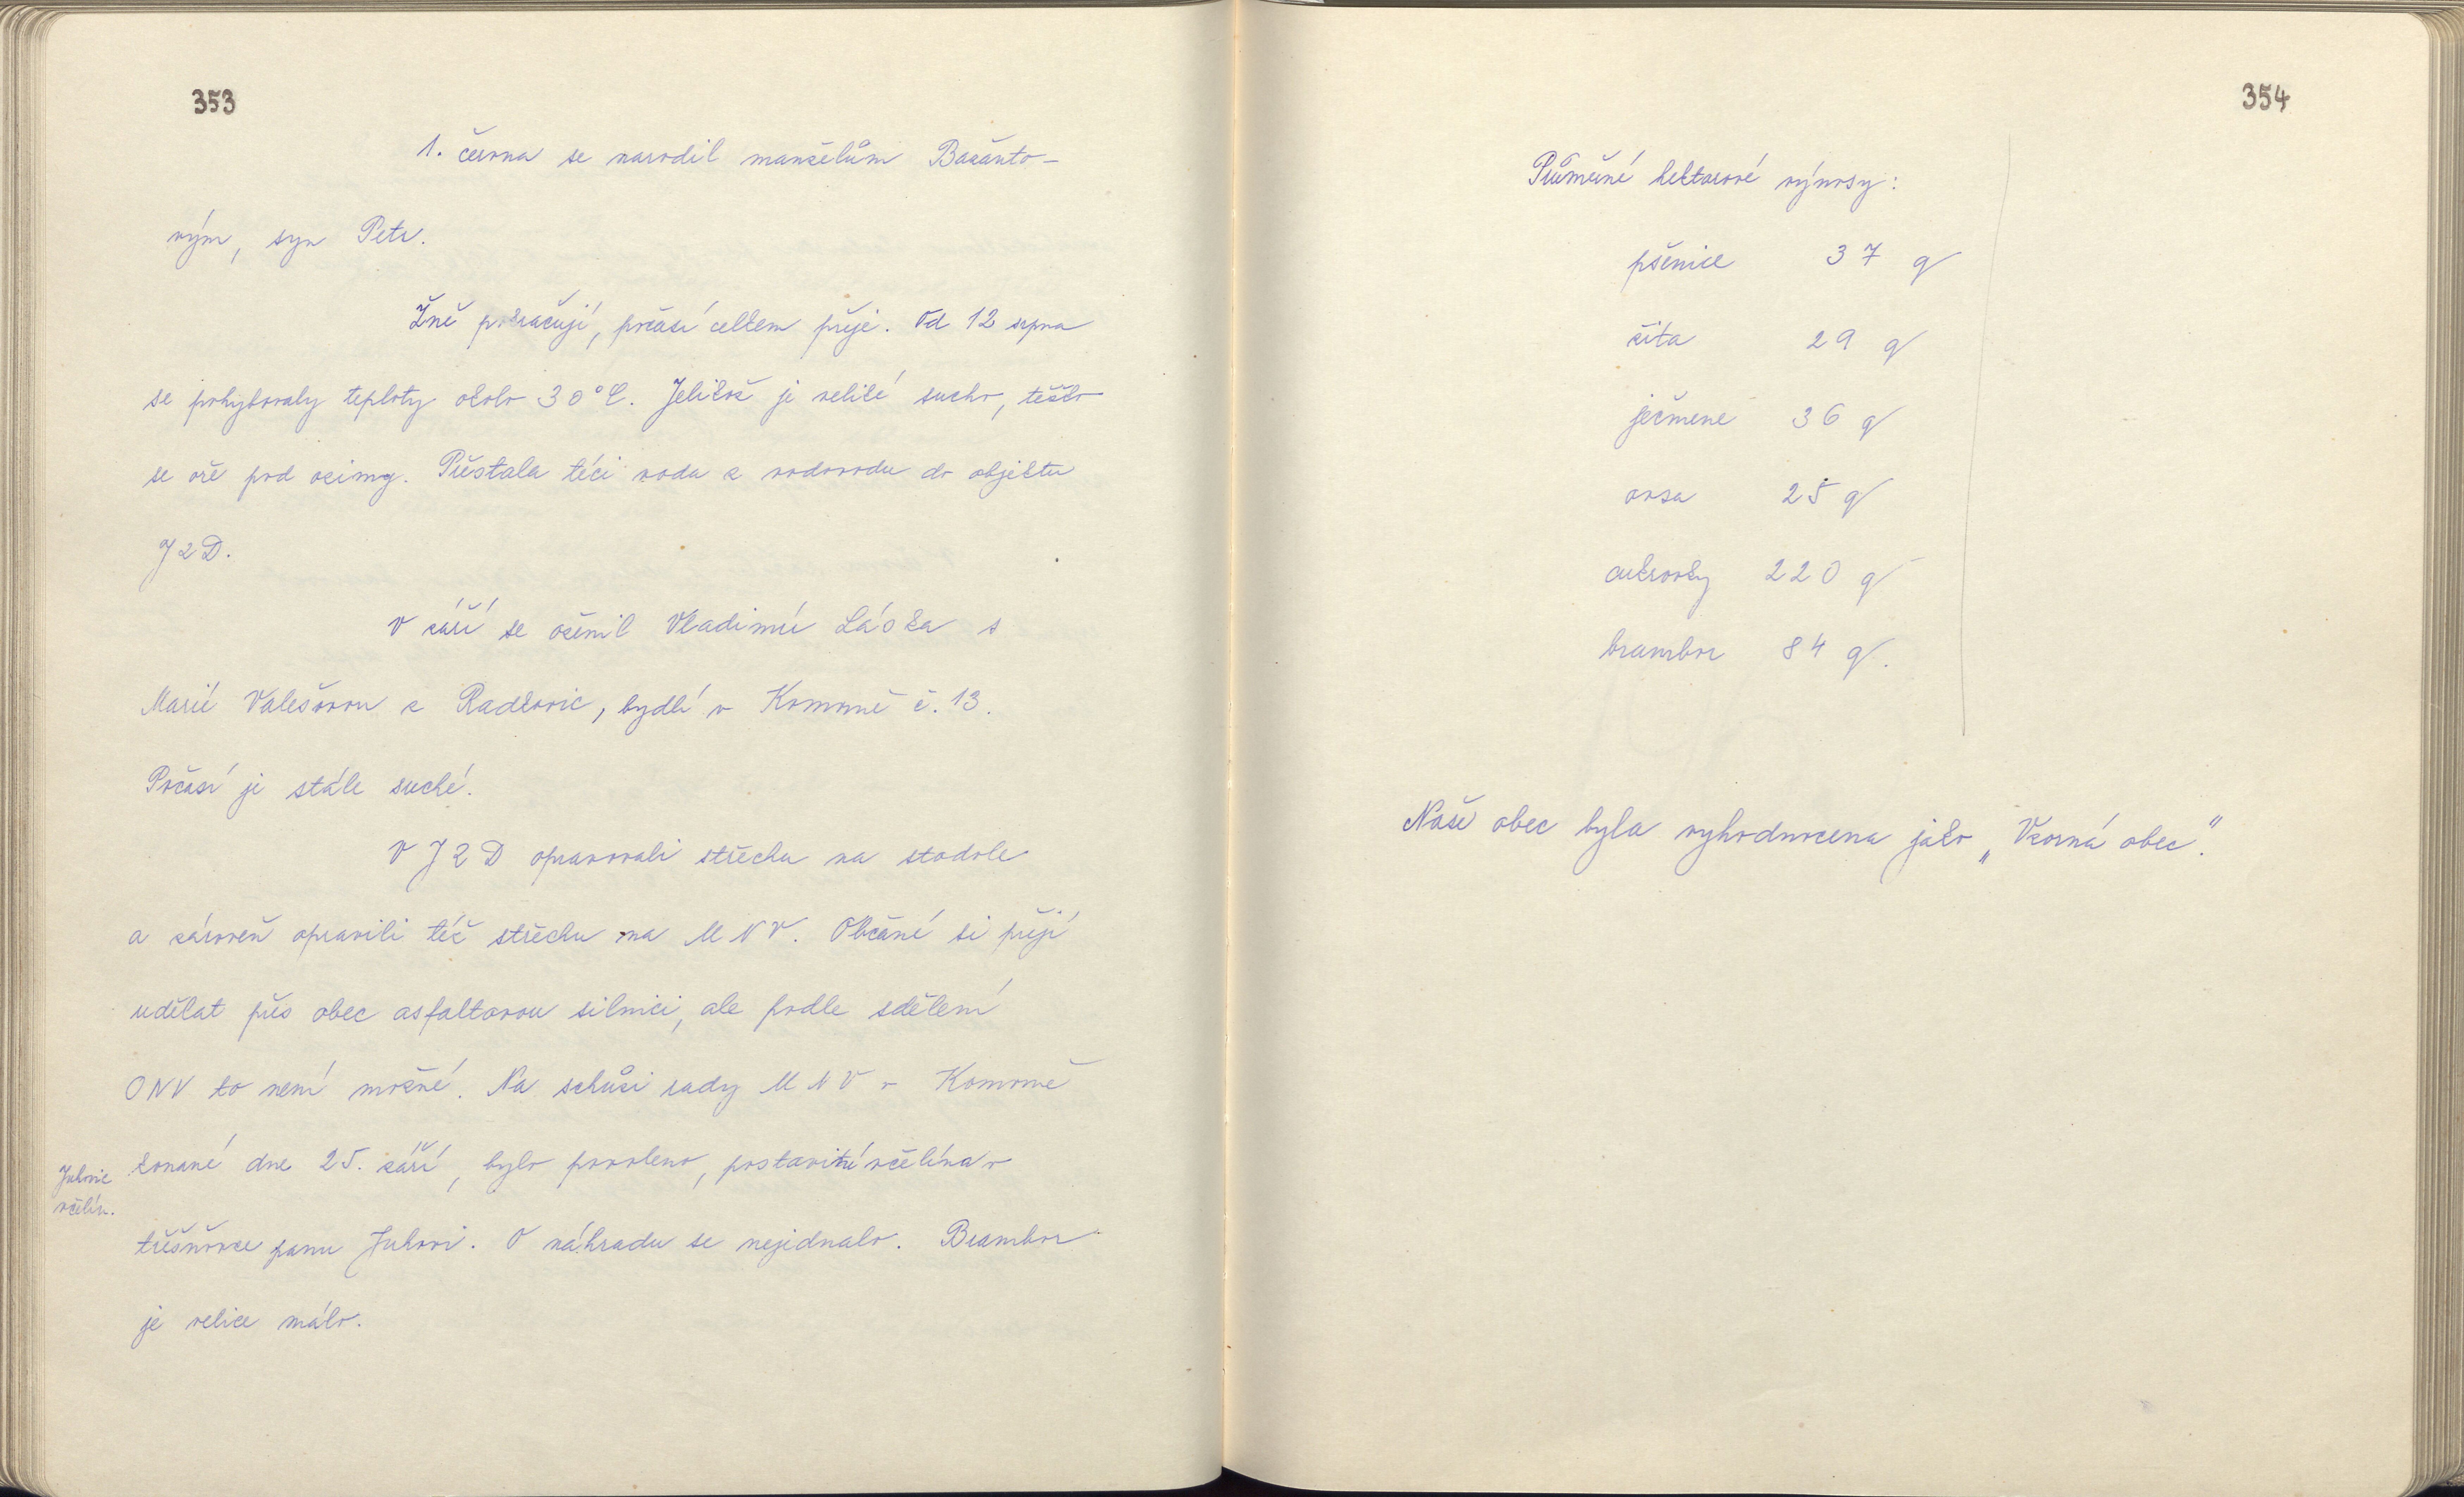 353
1. června se narodil manželům Bažanto-
vým, syn Petr.
Žně pokračují, počasí celkem přeje. Od 12 srpna
se pohybovaly teploty okolo 30°C. Jelikož je veliké sucho, těžko
se oře pod ozimy. Přestala téci voda z vodovodu do objektu
JZD.
V září se oženil Vladimír Láska s
Marií Valešovou z Radkovic, bydlí v Komorně č. 13.
Počasí je stále suché.
V JZD opravovali střechu na stodole
a zároveň opravili též střechu na MNV. Občané si přejí
udělat přes obec asfaltovou silnici, ale podle sdělení
ONV to není možné. Na schůzi rady MNV v Komorně
konané dne 25. září, bylo povoleno, postavití včelína v
Juhovic
včelín.
třešňovce panu Juhovi. O náhradu se nejednalo. Brambor
je velice málo.
354
Průměrné hektarové výnosy:
pšenice 37 q
žita 29 q
ječmene 36 q
ovsa 25 q
cukrovky 220 q
brambor 84 q.
Naše obec byla vyhodnocena jako „Vzorná obec".